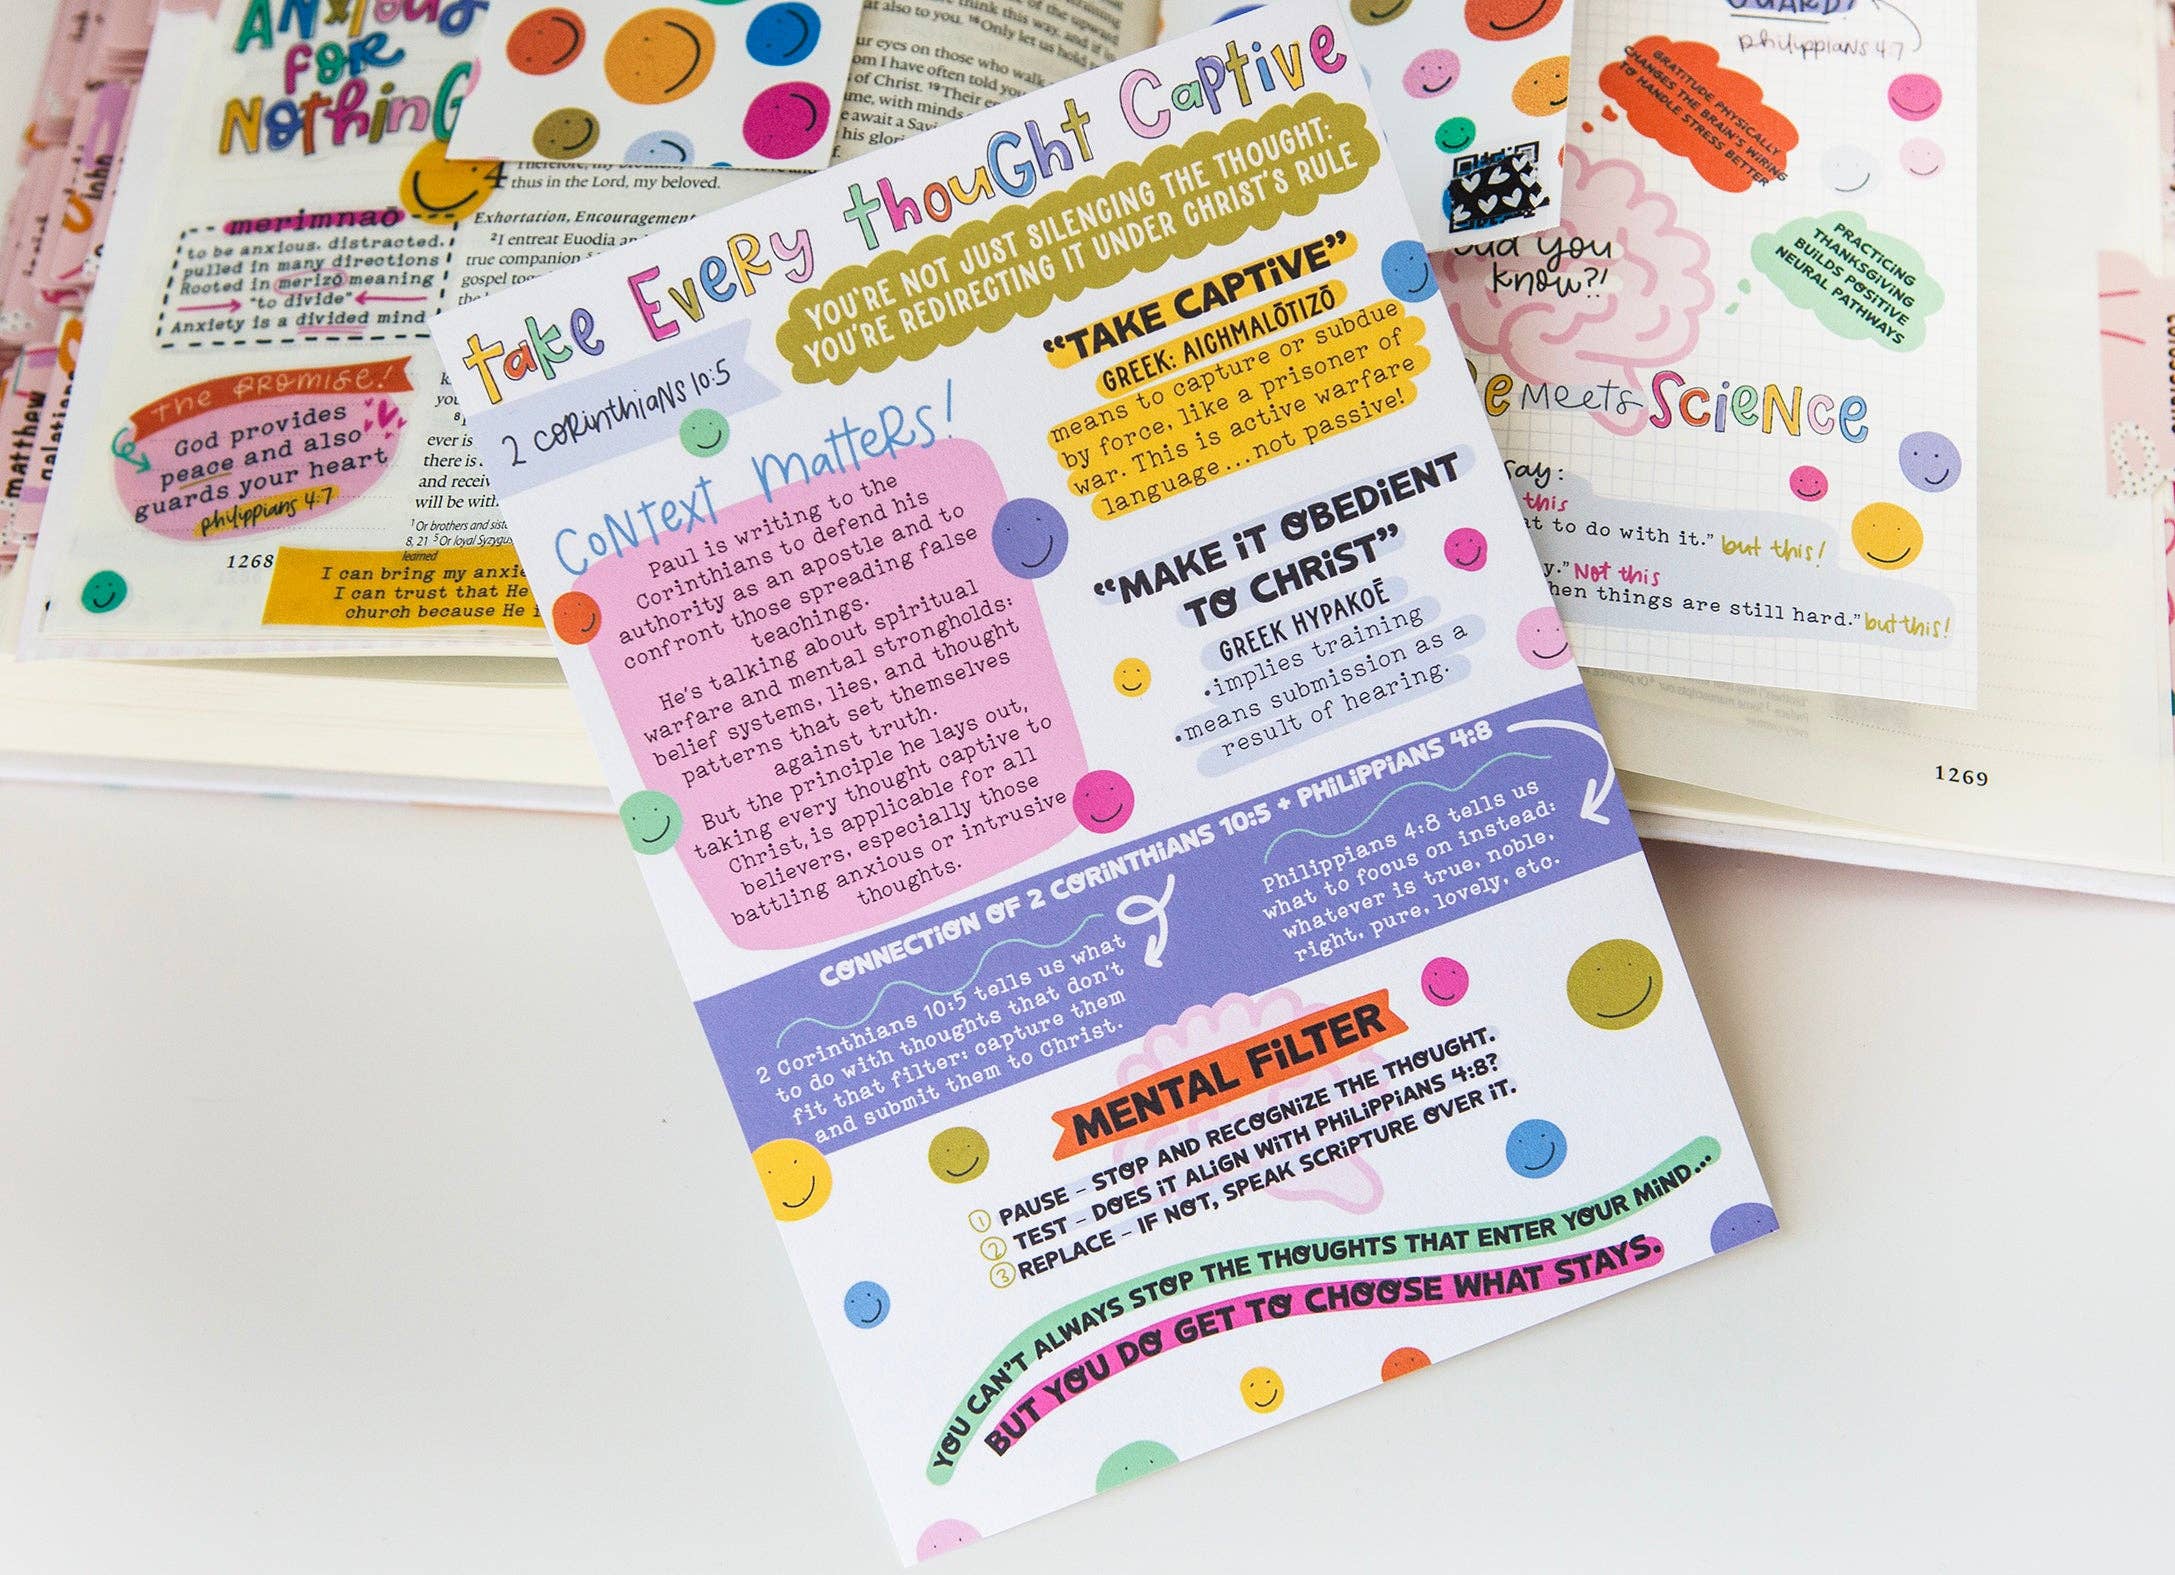 ANXIOUS
FOR
NOTHING
merimnaō
to be anxious, distracted,
pulled in many directions
Rooted in merizō meaning
"to divide"
Anxiety is a divided mind
The PROMISE!
God provides
peace and also
guards your heart
philippians 4:7
1268
learned
I can bring my
I can trust that He
church because He
matthew
at also to you. 16 Only let us hold
ur eyes on those who walk
om I have often told you
of Christ. 19 Their
ume, with minds
await a
his
4 Therefore, my
thus in the Lord, my beloved.
Exhortation, Encouragement
2 I entreat Euodia
true companion
gospel
ever is
there is
and
will be with
1 Or brothers and
8, 21 5 Or loyal Syzygus
Take Every thouGht Captive
2 CORinthiaNs 10:5
YOU'RE NOT JUST SILENCING THE THOUGHT:
YOU'RE REDIRECTING IT UNDER CHRIST'S RULE
CoNText MatteRs!
Paul is writing to the
Corinthians to defend his
authority as an apostle and to
confront those spreading false
teachings.
He's talking about spiritual
warfare and mental strongholds:
belief systems, lies, and thought
patterns that set themselves
against truth.
But the principle he lays out,
taking every thought captive to
Christ, is applicable for all
believers, especially those
battling anxious or intrusive
thoughts.
"TAKE CAPTiVE"
GREEK: AICHMALŌTIZŌ
means to capture or subdue
by force, like a prisoner of
war. This is active warfare
language...not passive!
"MAKE iT OBEDiENT
TO CHRiST"
GREEK HYPAKOĒ
•implies training
•means submission as a
result of hearing.
CONNECTiON OF 2 CORiNTHiANS 10:5 + PHiLiPPiANS 4:8
2 Corinthians 10:5 tells us what
to do with thoughts that don't
fit that filter: capture them
and submit them to Christ.
Philippians 4:8 tells us
what to focus on instead:
whatever is true, noble,
right, pure, lovely, etc.
MENTAL FiLTER
1 PAUSE – STOP AND RECOGNiZE THE THOUGHT.
2 TEST – DOES iT ALiGN WiTH PHiLiPPiANS 4:8?
3 REPLACE – IF NOT, SPEAK SCRiPTURE OVER iT.
YOU CAN'T ALWAYS STOP THE THOUGHTS THAT ENTER YOUR MiND...
BUT YOU DO GET TO CHOOSE WHAT STAYS.
GUARD!
philippians 4:7
GRATITUDE PHYSICALLY
CHANGES THE BRAIN'S WIRING
TO HANDLE STRESS BETTER
PRACTICING
THANKSGIVING
BUILDS POSITIVE
NEURAL PATHWAYS
you
know?!
Meets SCieNCe
say:
this
to do with it." but this!
Not this
things are still hard." but this!
1269